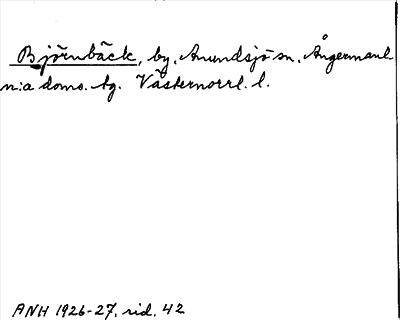 Björnbäck, by, Anundsjö sn, Ångermanl.
n:a doms. tg. Västernorrl. l.
ANH 1926-27, sid. 42